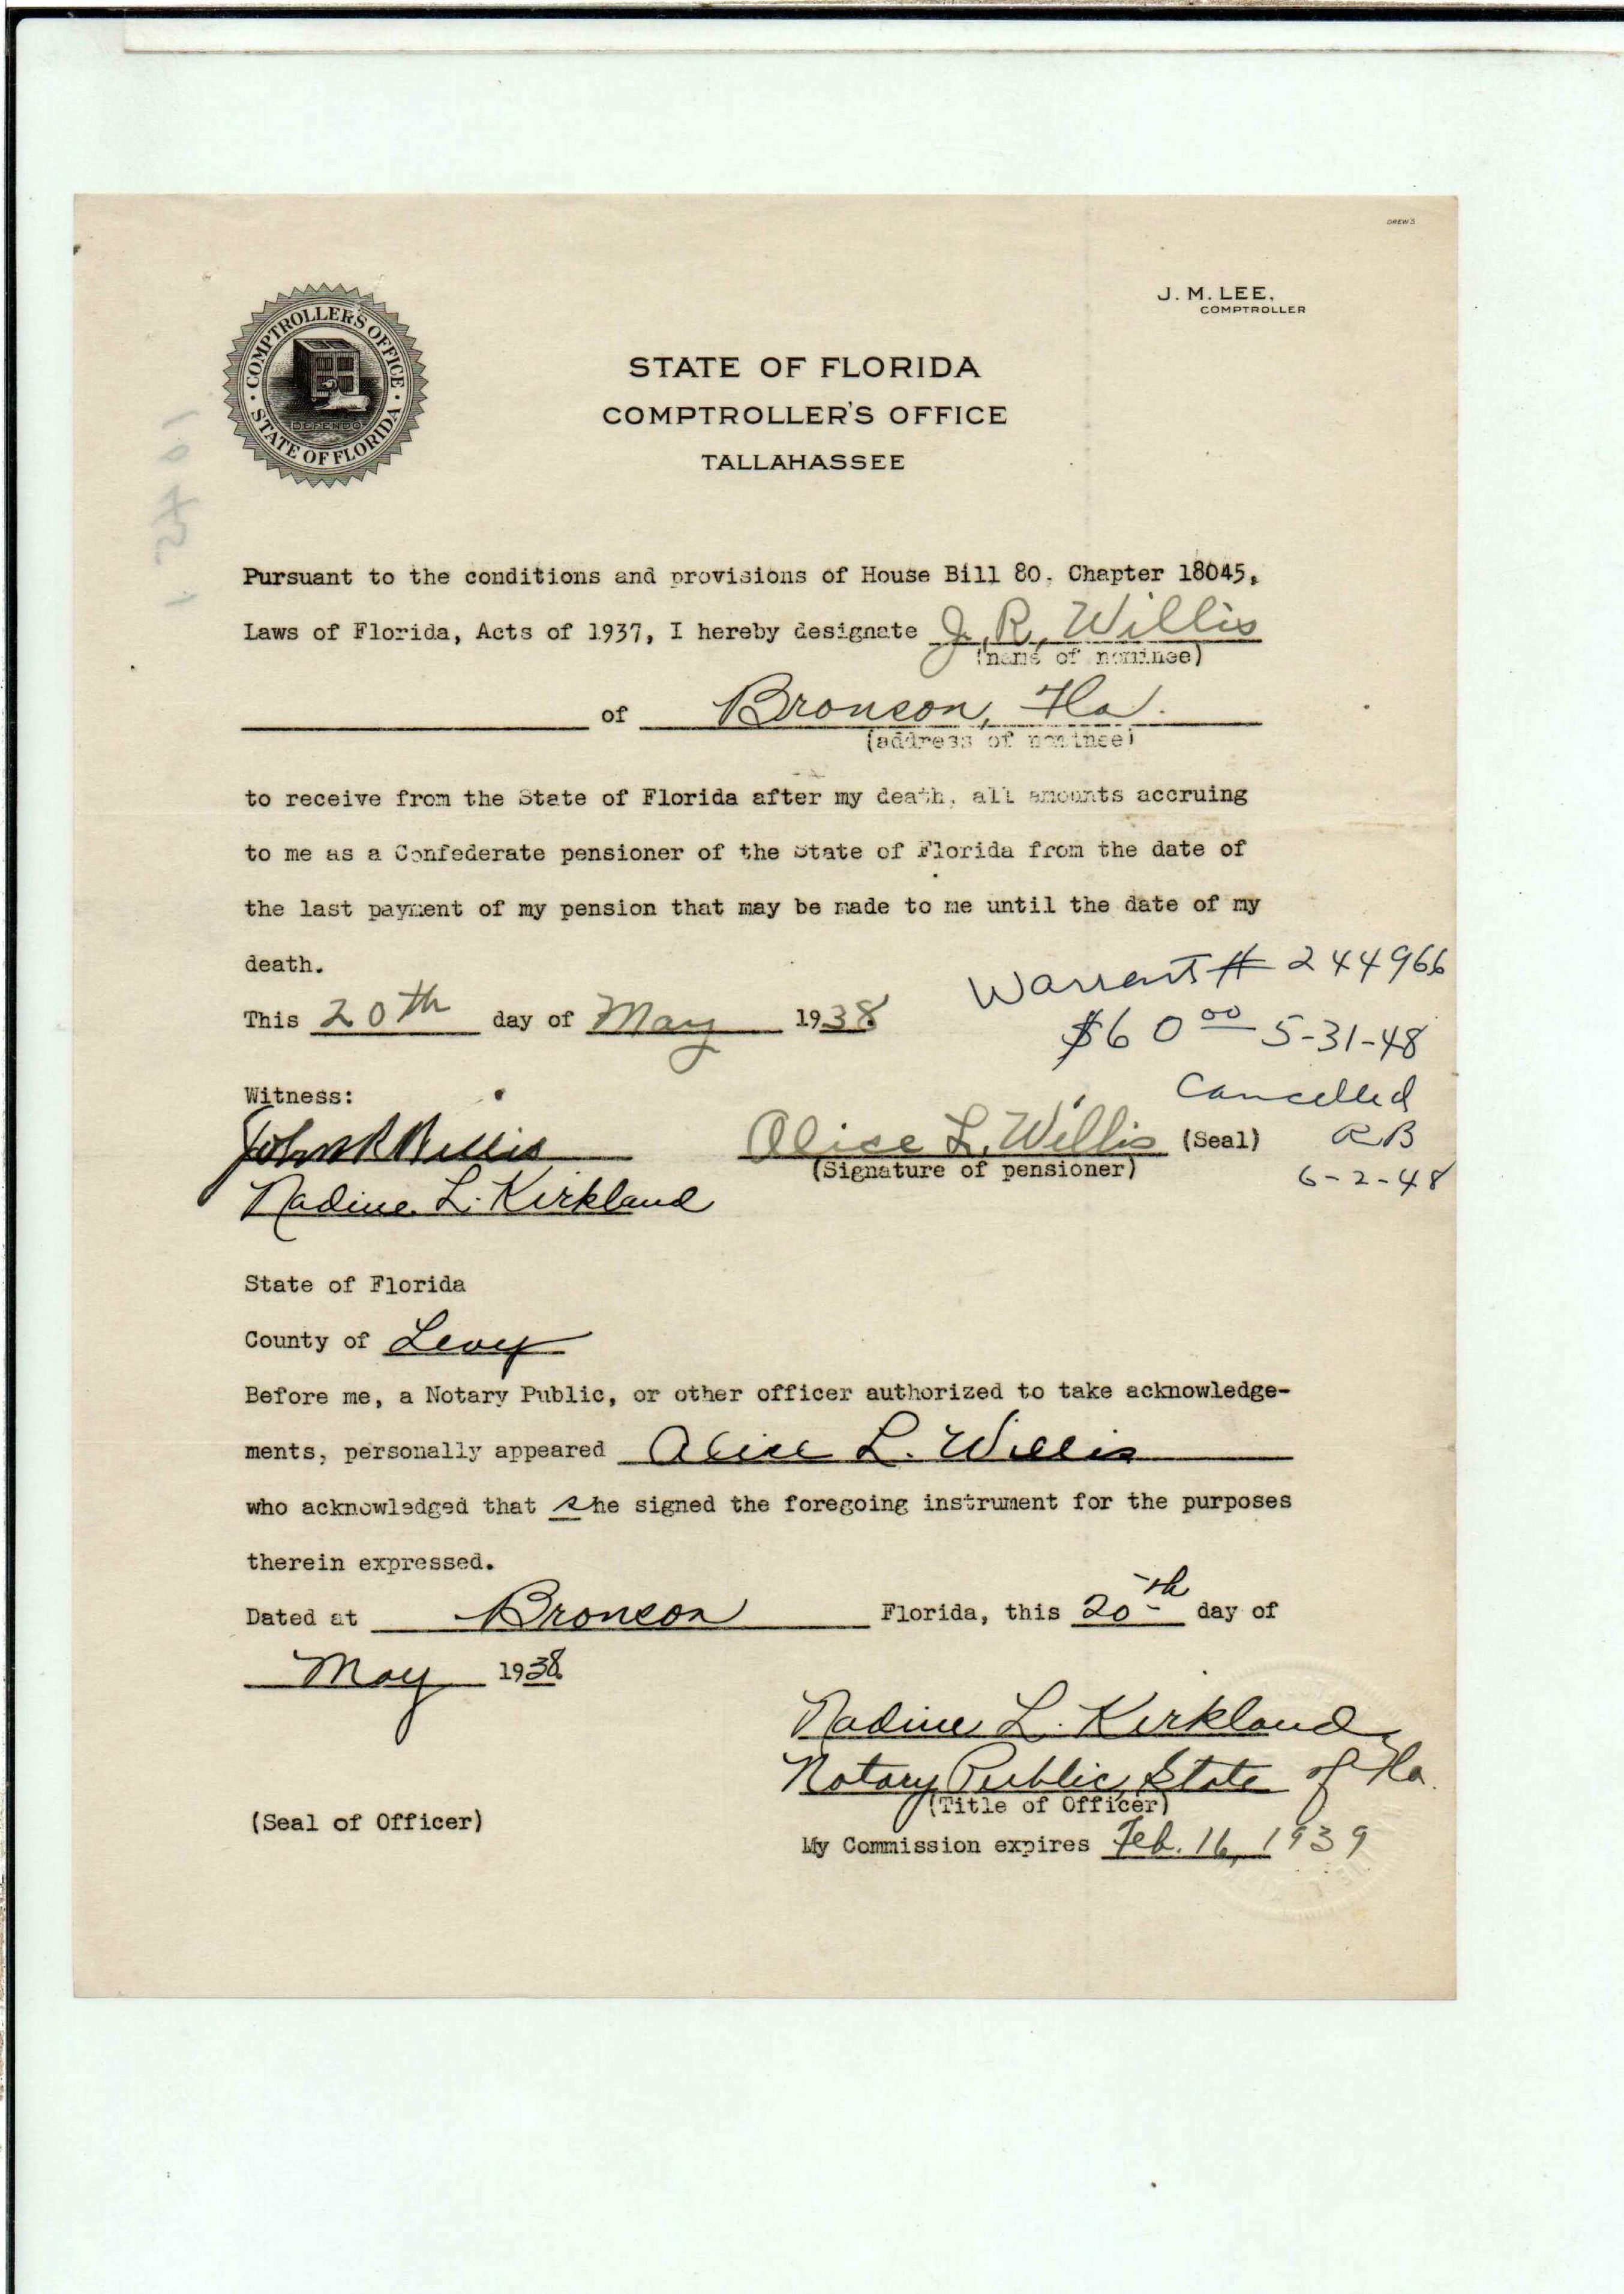 DREWS
J. M. LEE,
COMPTROLLER
COMPTROLLER'S OFFICE
DEPENDO
STATE OF FLORIDA
STATE OF FLORIDA
COMPTROLLER'S OFFICE
TALLAHASSEE
Pursuant to the conditions and provisions of House Bill 80, Chapter 18045,
Laws of Florida, Acts of 1937, I hereby designate J. R. Willis
(name of nominee)
of Bronson, Fla.
(address of nominee)
to receive from the State of Florida after my death, all amounts accruing
to me as a Confederate pensioner of the State of Florida from the date of
the last payment of my pension that may be made to me until the date of my
death.
Warrant # 244966
This 20th day of May 1938
$60 00 5-31-48
Cancelled
Witness:
John R Willis
Alice L. Willis (Seal) RB
(Signature of pensioner)
6-2-48
Nadine L. Kirkland
State of Florida
County of Levy
Before me, a Notary Public, or other officer authorized to take acknowledge-
ments, personally appeared Alice L. Willis
who acknowledged that she signed the foregoing instrument for the purposes
therein expressed.
Dated at Bronson Florida, this 20th day of
May 1938
Nadine L. Kirkland
Notary Public, State of Fla.
(Title of Officer)
(Seal of Officer)
My Commission expires Feb. 16, 1939